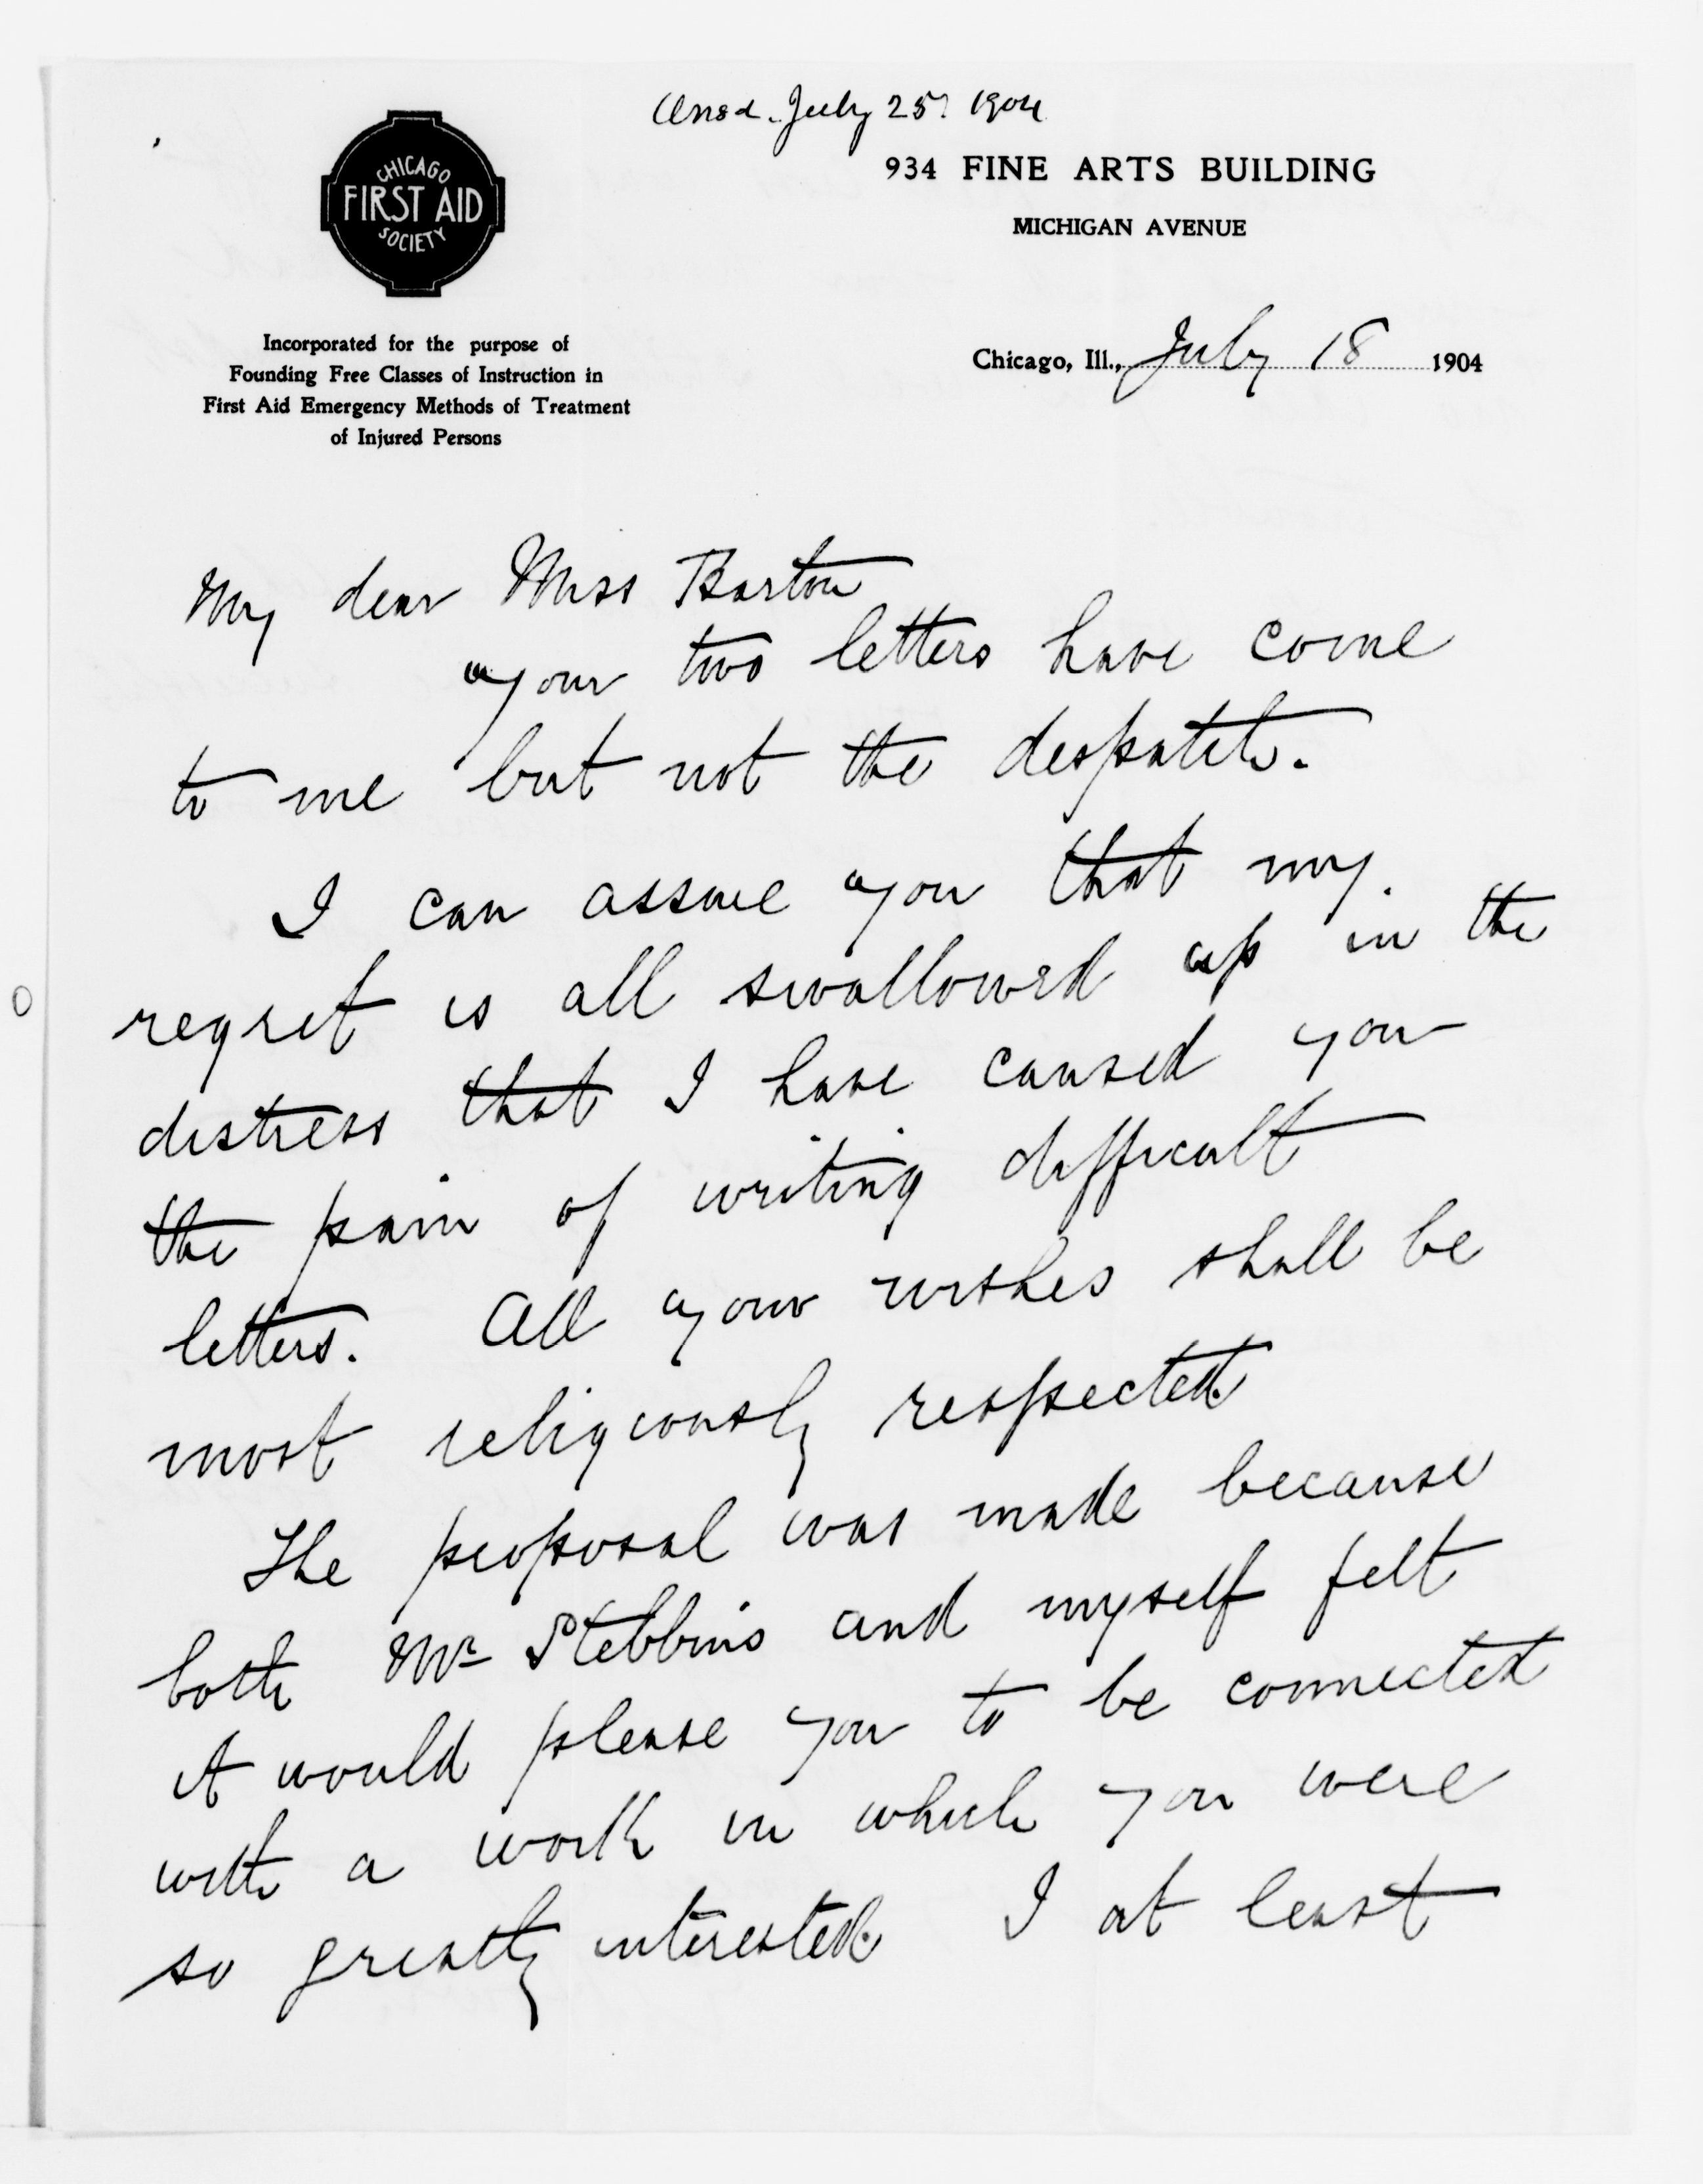 Ansd. July 25. 1904
CHICAGO
FIRST AID
SOCIETY
934 FINE ARTS BUILDING
MICHIGAN AVENUE
Incorporated for the purpose of
Founding Free Classes of Instruction in
First Aid Emergency Methods of Treatment
of Injured Persons
Chicago, Ill., July 18 1904
My dear Miss Barton
your two letters have come
to me but not the despatch.
I can assure you that my
regret is all swallowed up in the
distress that I have caused you
the pain of writing difficult
letters. All your wishes shall be
most religiously respected.
The proposal was made because
both Mr Stebbins and myself felt
it would please you to be connected
with a work in which you were
so greatly interested. I at least